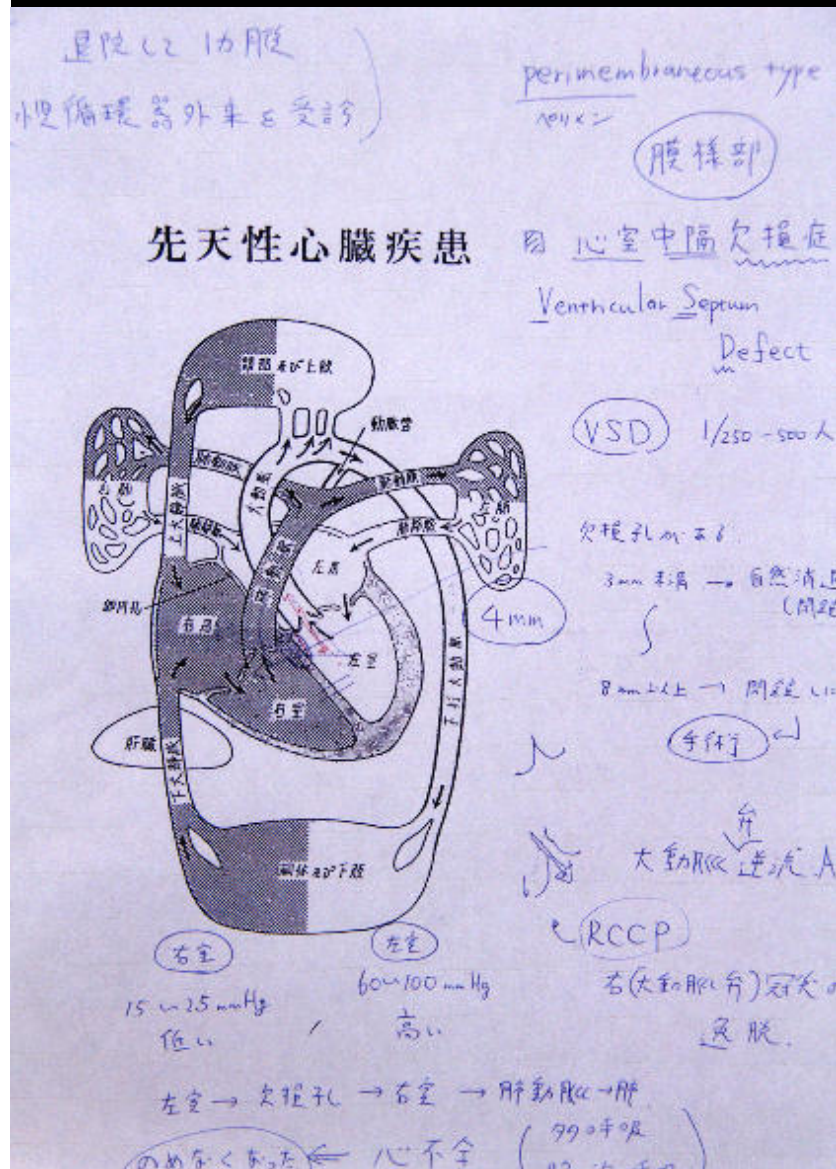 退院して 1カ月後
循環器外来を受診
perimembraneous type
ペリメン
膜様部
先天性心臓疾患
心室中隔欠損症
Ventricular Septum
Defect
VSD 1/250-500人
欠損孔がある
3mm 未満 →
4mm
8mm以上 →
手術
弁
大動脈 逆流 A
RCCP
右(大動脈弁)冠尖の
逸脱.
頭部及び上肢
動脈管
肺動脈
大動脈
肺動脈
上大静脈
肺静脈
肺静脈
左房
肺動脈
卵円孔
右房
左室
右室
下行大動脈
肝臓
下大静脈
躯体及び下肢
右室
左室
15~25mmHg
60~100mmHg
低い
高い
左室→欠損孔→右室→肺動脈→肺
のめなくなった ← 心不全
多呼吸